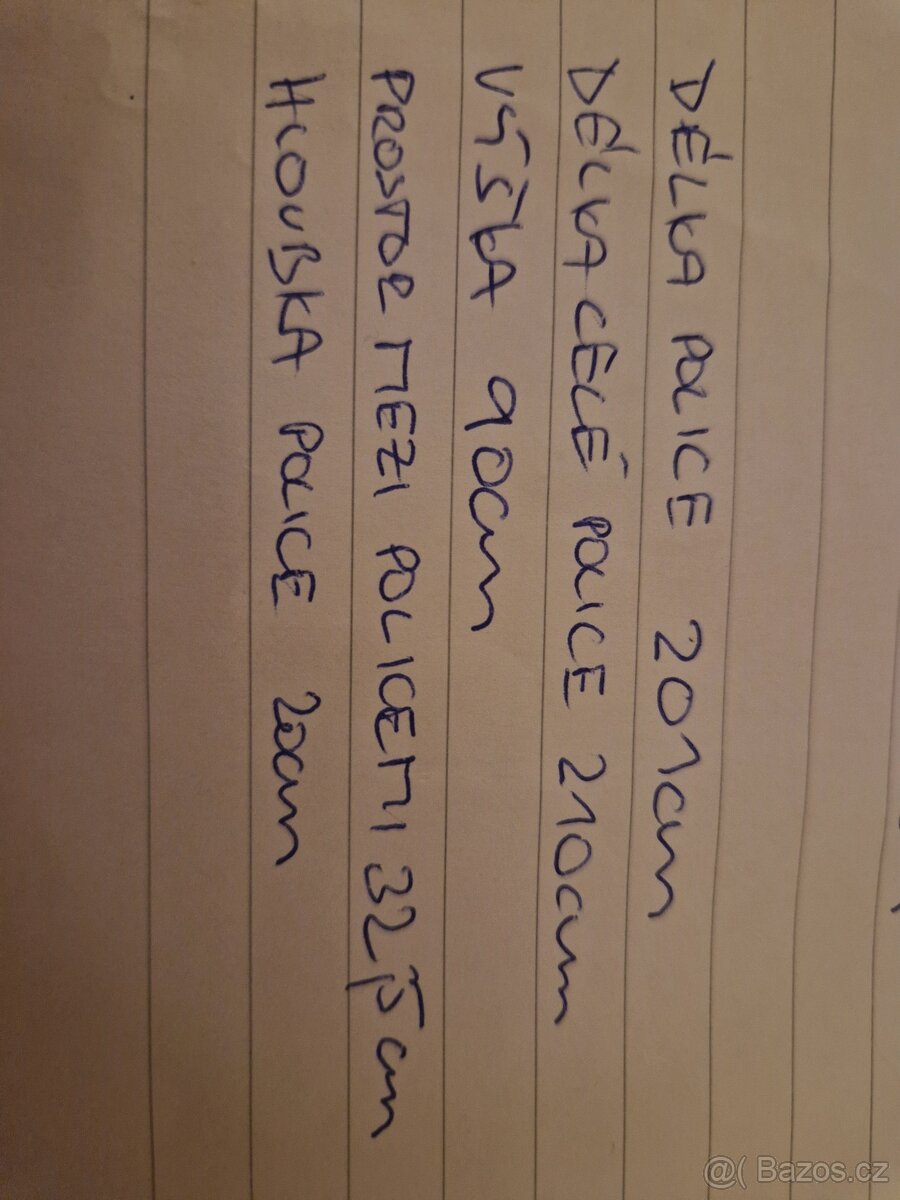 DÉLKA POLICE 201cm
DÉLKA CELÉ POLICE 210cm
VÝŠKA 90cm
PROSTOR MEZI POLICEMI 32,5cm
HLOUBKA POLICE 20cm
@( Bazos.cz